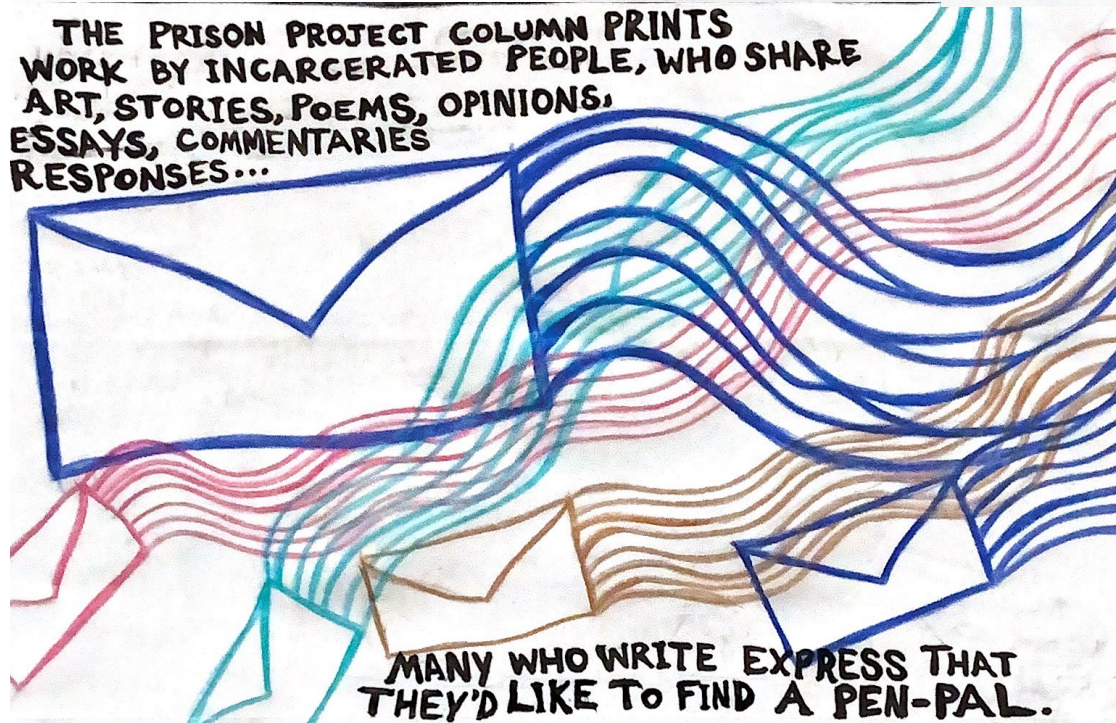 THE PRISON PROJECT COLUMN PRINTS
WORK BY INCARCERATED PEOPLE, WHO SHARE
ART, STORIES, POEMS, OPINIONS,
ESSAYS, COMMENTARIES
RESPONSES...
MANY WHO WRITE EXPRESS THAT
THEY'D LIKE TO FIND A PEN-PAL.